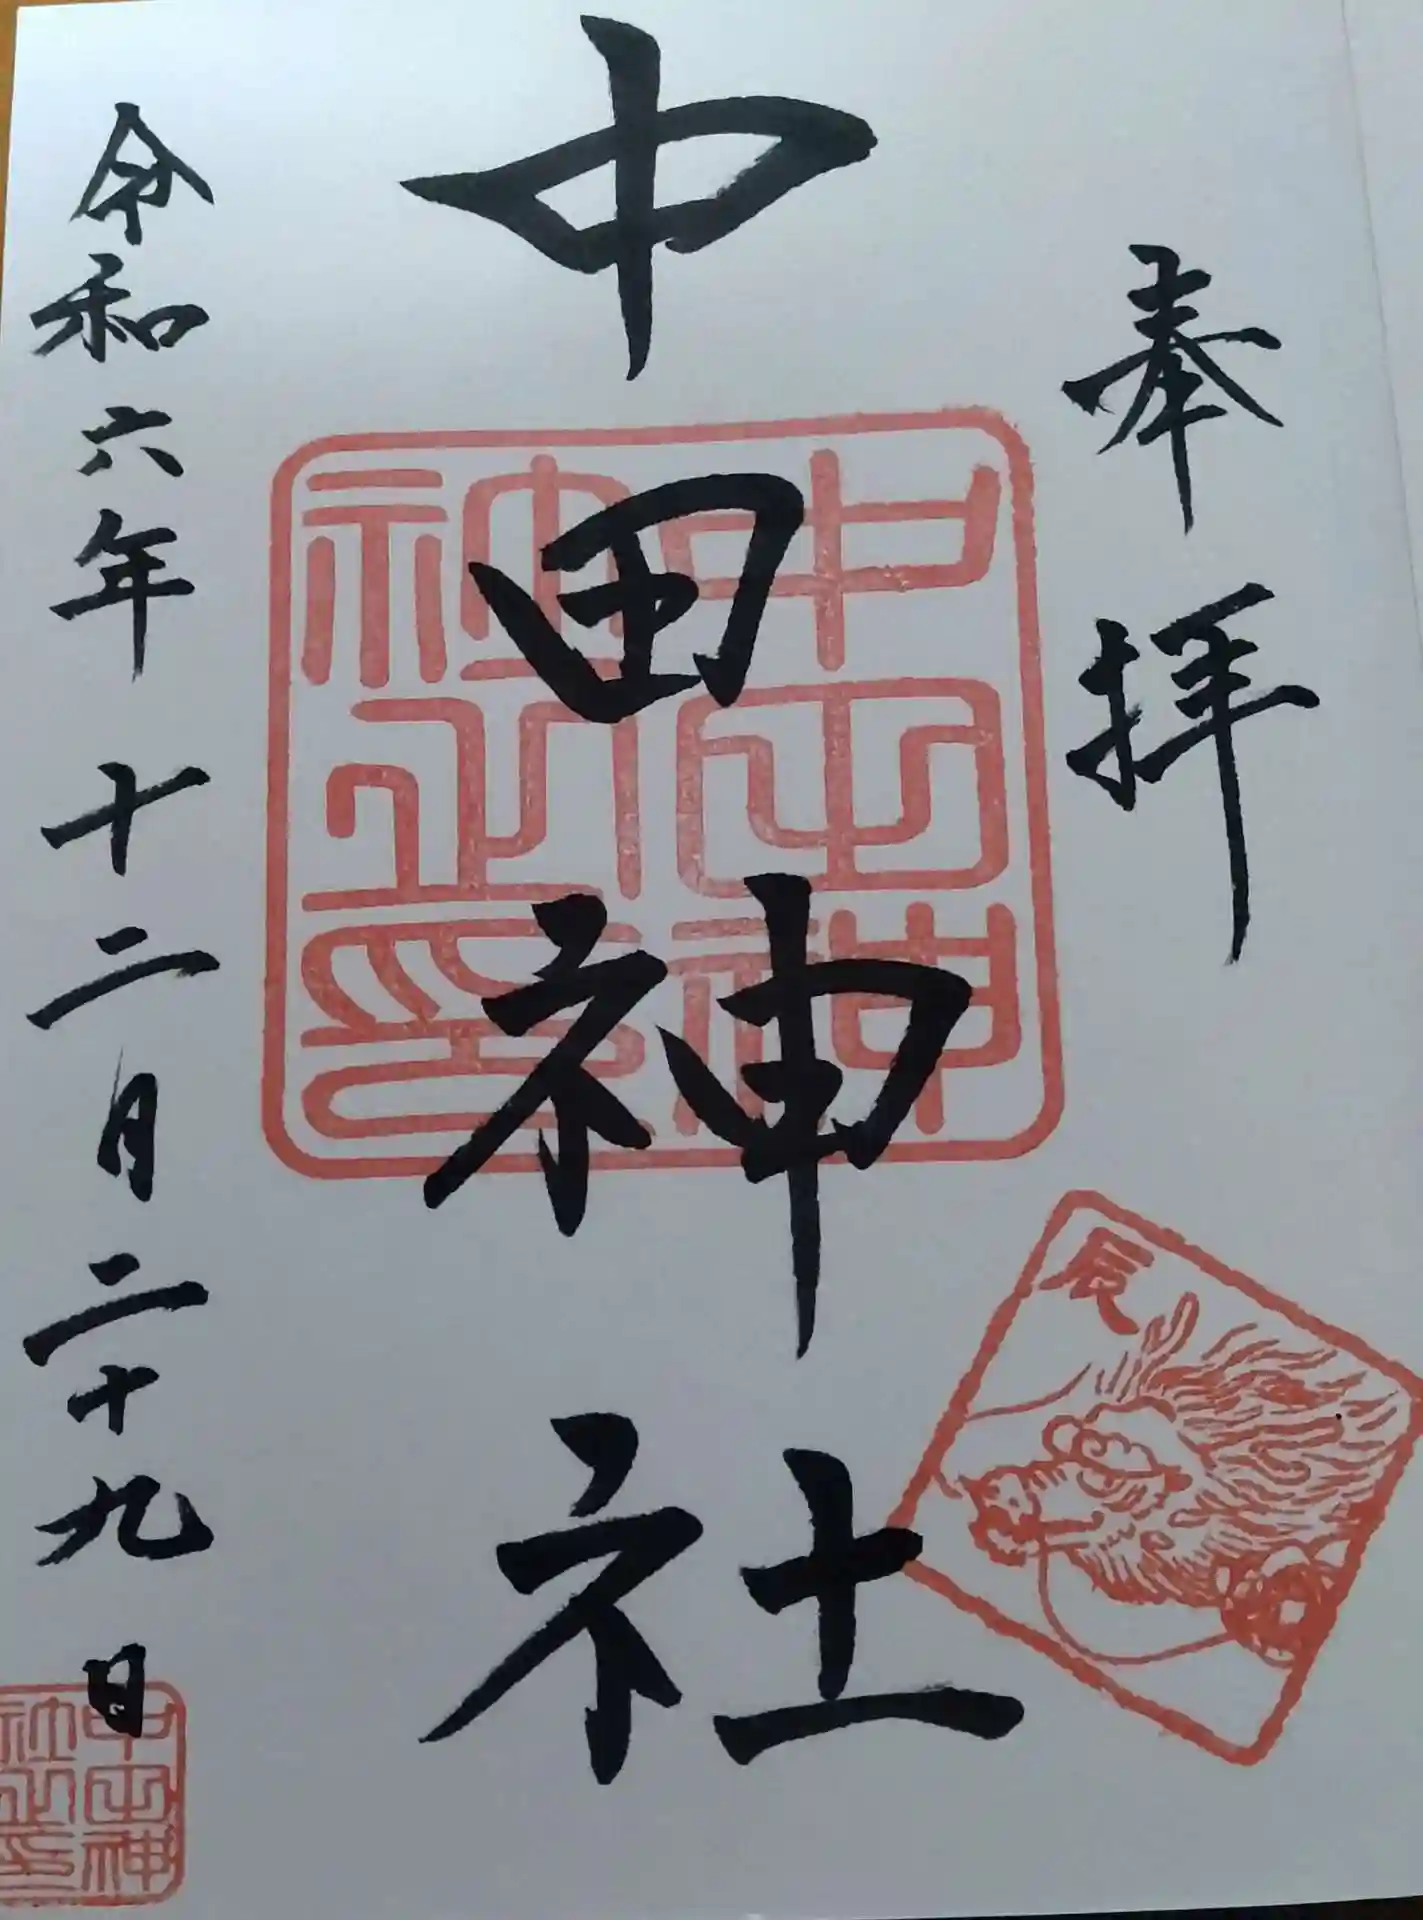 奉拝
辰
中田神社
中田神社之印
令和六年十二月二十九日
中田神社之印